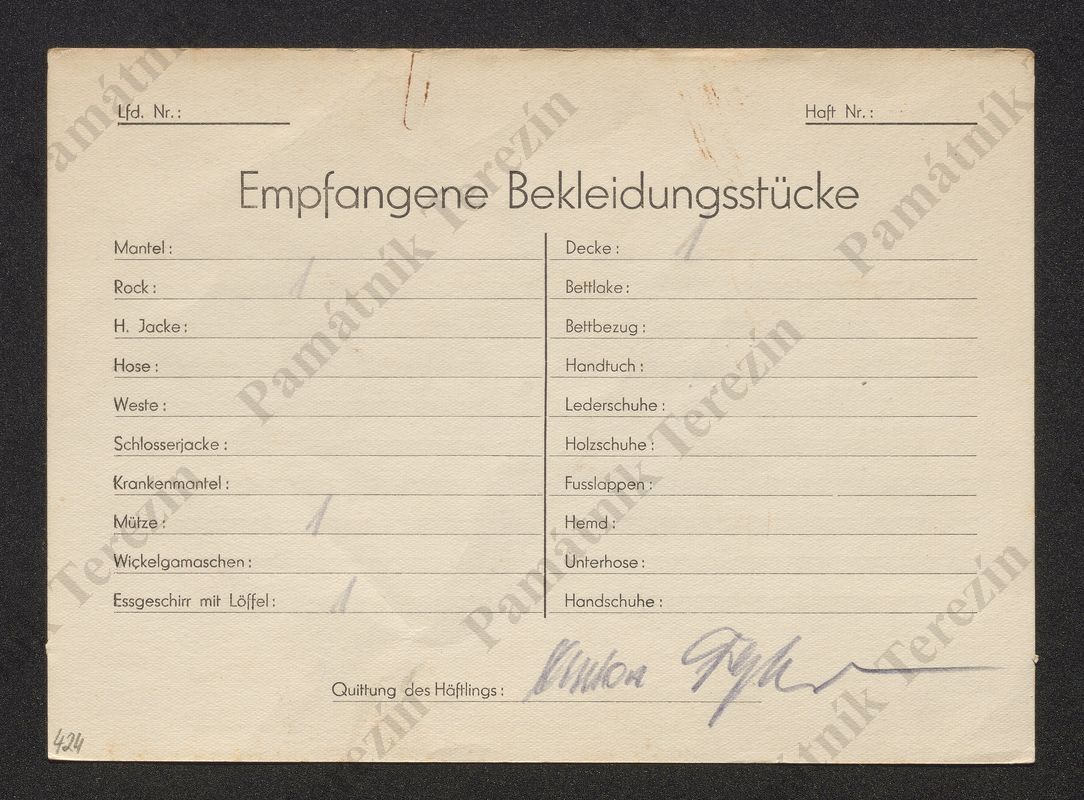 Lfd. Nr.:
Haft Nr.:
Empfangene Bekleidungsstücke
Mantel:
Rock: 1
H. Jacke:
Hose:
Weste:
Schlosserjacke:
Krankenmantel:
Mütze: 1
Wickelgamaschen:
Essgeschirr mit Löffel: 1
Decke: 1
Bettlake:
Bettbezug:
Handtuch:
Lederschuhe:
Holzschuhe:
Fusslappen:
Hemd:
Unterhose:
Handschuhe:
Quittung des Häftlings:
424
Památník Terezín